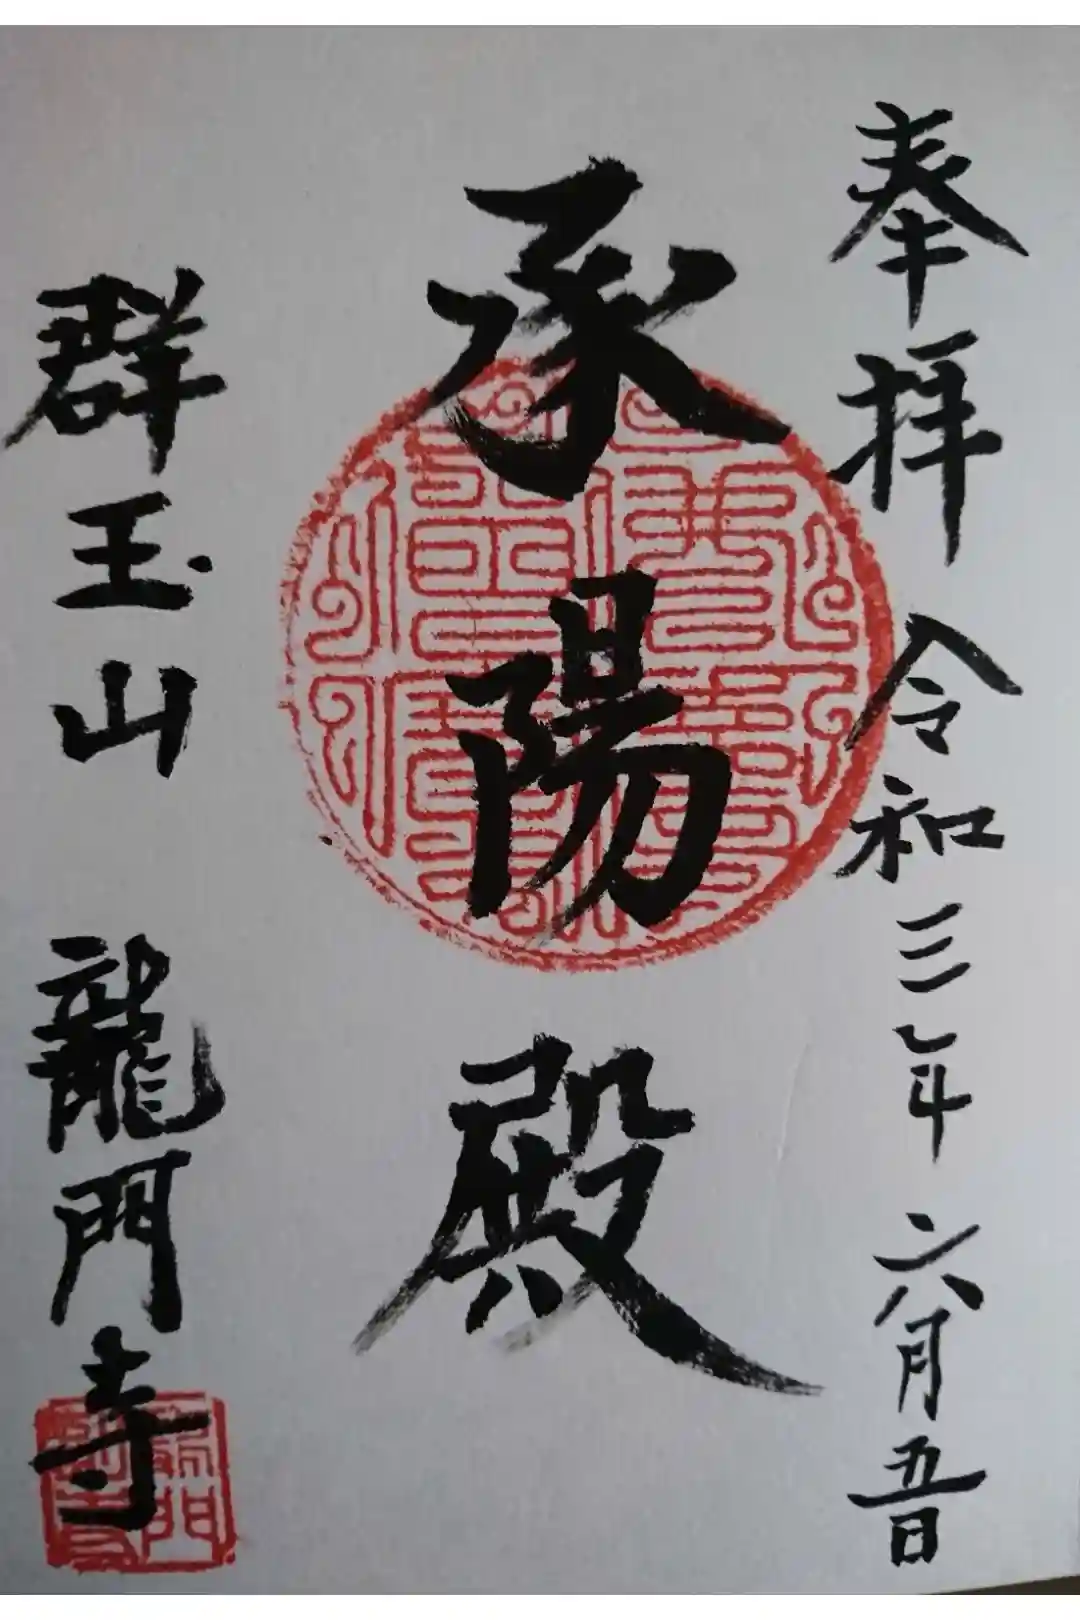 奉拝 令和三年 六月五日
承陽殿
群玉山 龍門寺